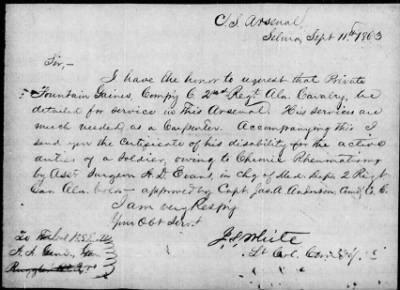 C. S. Arsenal,
Selma, Sept 11th 1863
Sir,—
I have the honor to request that Private
Fountain Gaines, Comp'y C 2nd Regt Ala. Cavalry, be
detailed for service in this Arsenal. His services are
much needed, as a Carpenter. Accompanying this I
send you the Certificate of his disability for the active
duties of a Soldier, owing to Chronic Rheumatism
by Asst Surgeon H. D. Evans, in chg of Med. Dept. 2 Regt
Cav. Ala. approved by Capt. Jas. A. Anderson Comdg Co. C.
I am very Resp'y
Your Obt Servt
J. L. White
Lt Col. Comdg
To
A. A. Genl